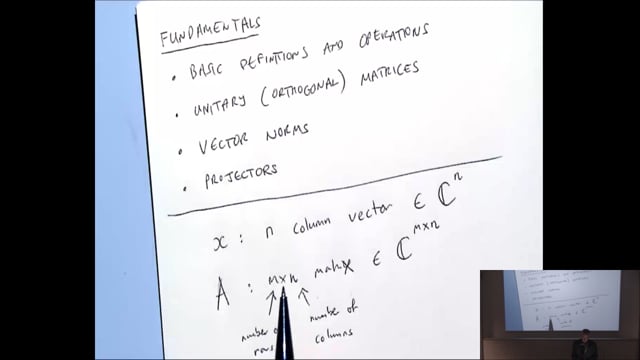 FUNDAMENTALS
• BASIC DEFINTIONS AND OPERATIONS
• UNITARY (ORTHOGONAL) MATRICES
• VECTOR NORMS
• PROJECTORS
x : n column vector ∈ ℂⁿ
A : m×n matrix ∈ ℂᵐˣⁿ
number of rows
number of columns